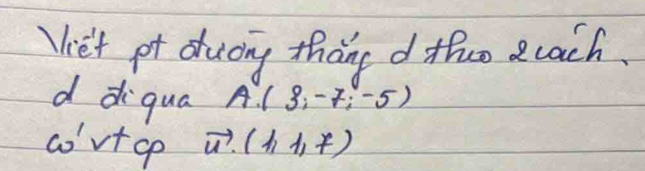 Viết pt đường thẳng d theo 2 cách.
d đi qua A.(3;-7;-5)
có vtcp u⃗.(1,1,7)